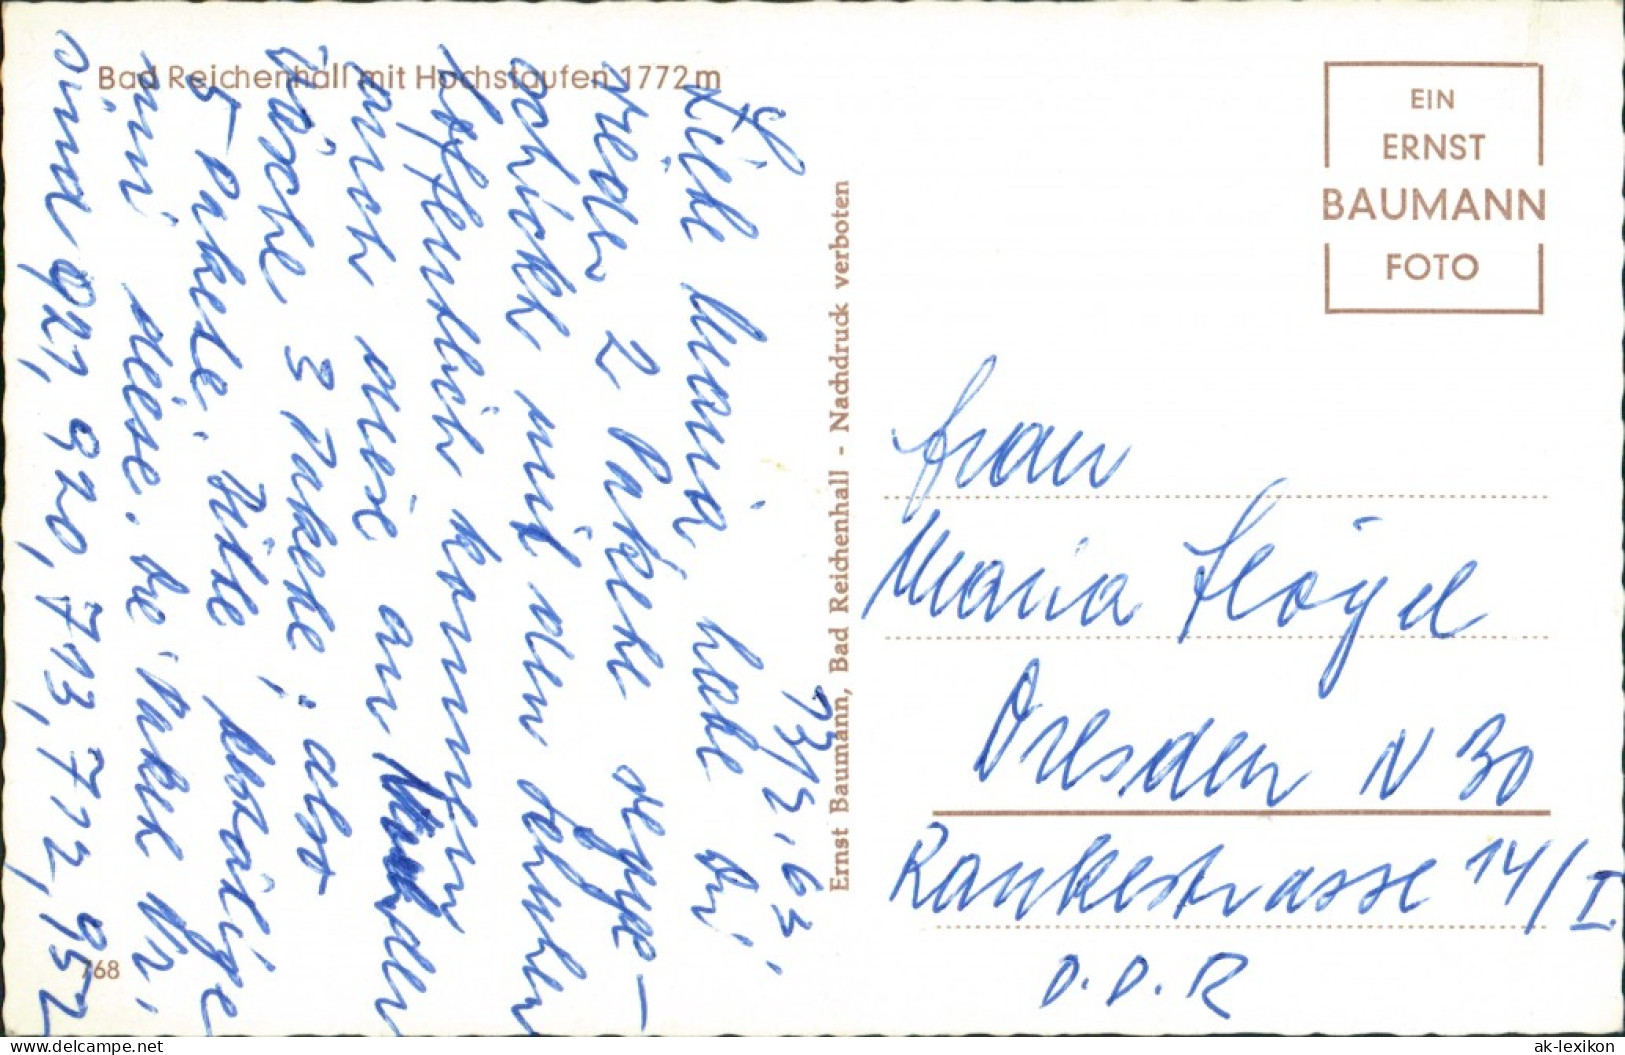 Bad Reichenhall mit Hochstaufen 1772 m
EIN
ERNST
BAUMANN
FOTO
Ernst Baumann, Bad Reichenhall - Nachdruck verboten
13/3.63
Liebe Maria, habe Dir
wieder 2 Pakete
schickt mit den
hoffentlich kommen
auch diese an
Wäsche 3 Pakete; also
5 Pakete. Bitte bestätige
mir diese. Die Paket Nr.
sind 921, 920, 713, 712, 952
768
Frau
Maria Flögel
Dresden N 30
Rankestrasse 14/I
D.D.R
ak-lexikon.com